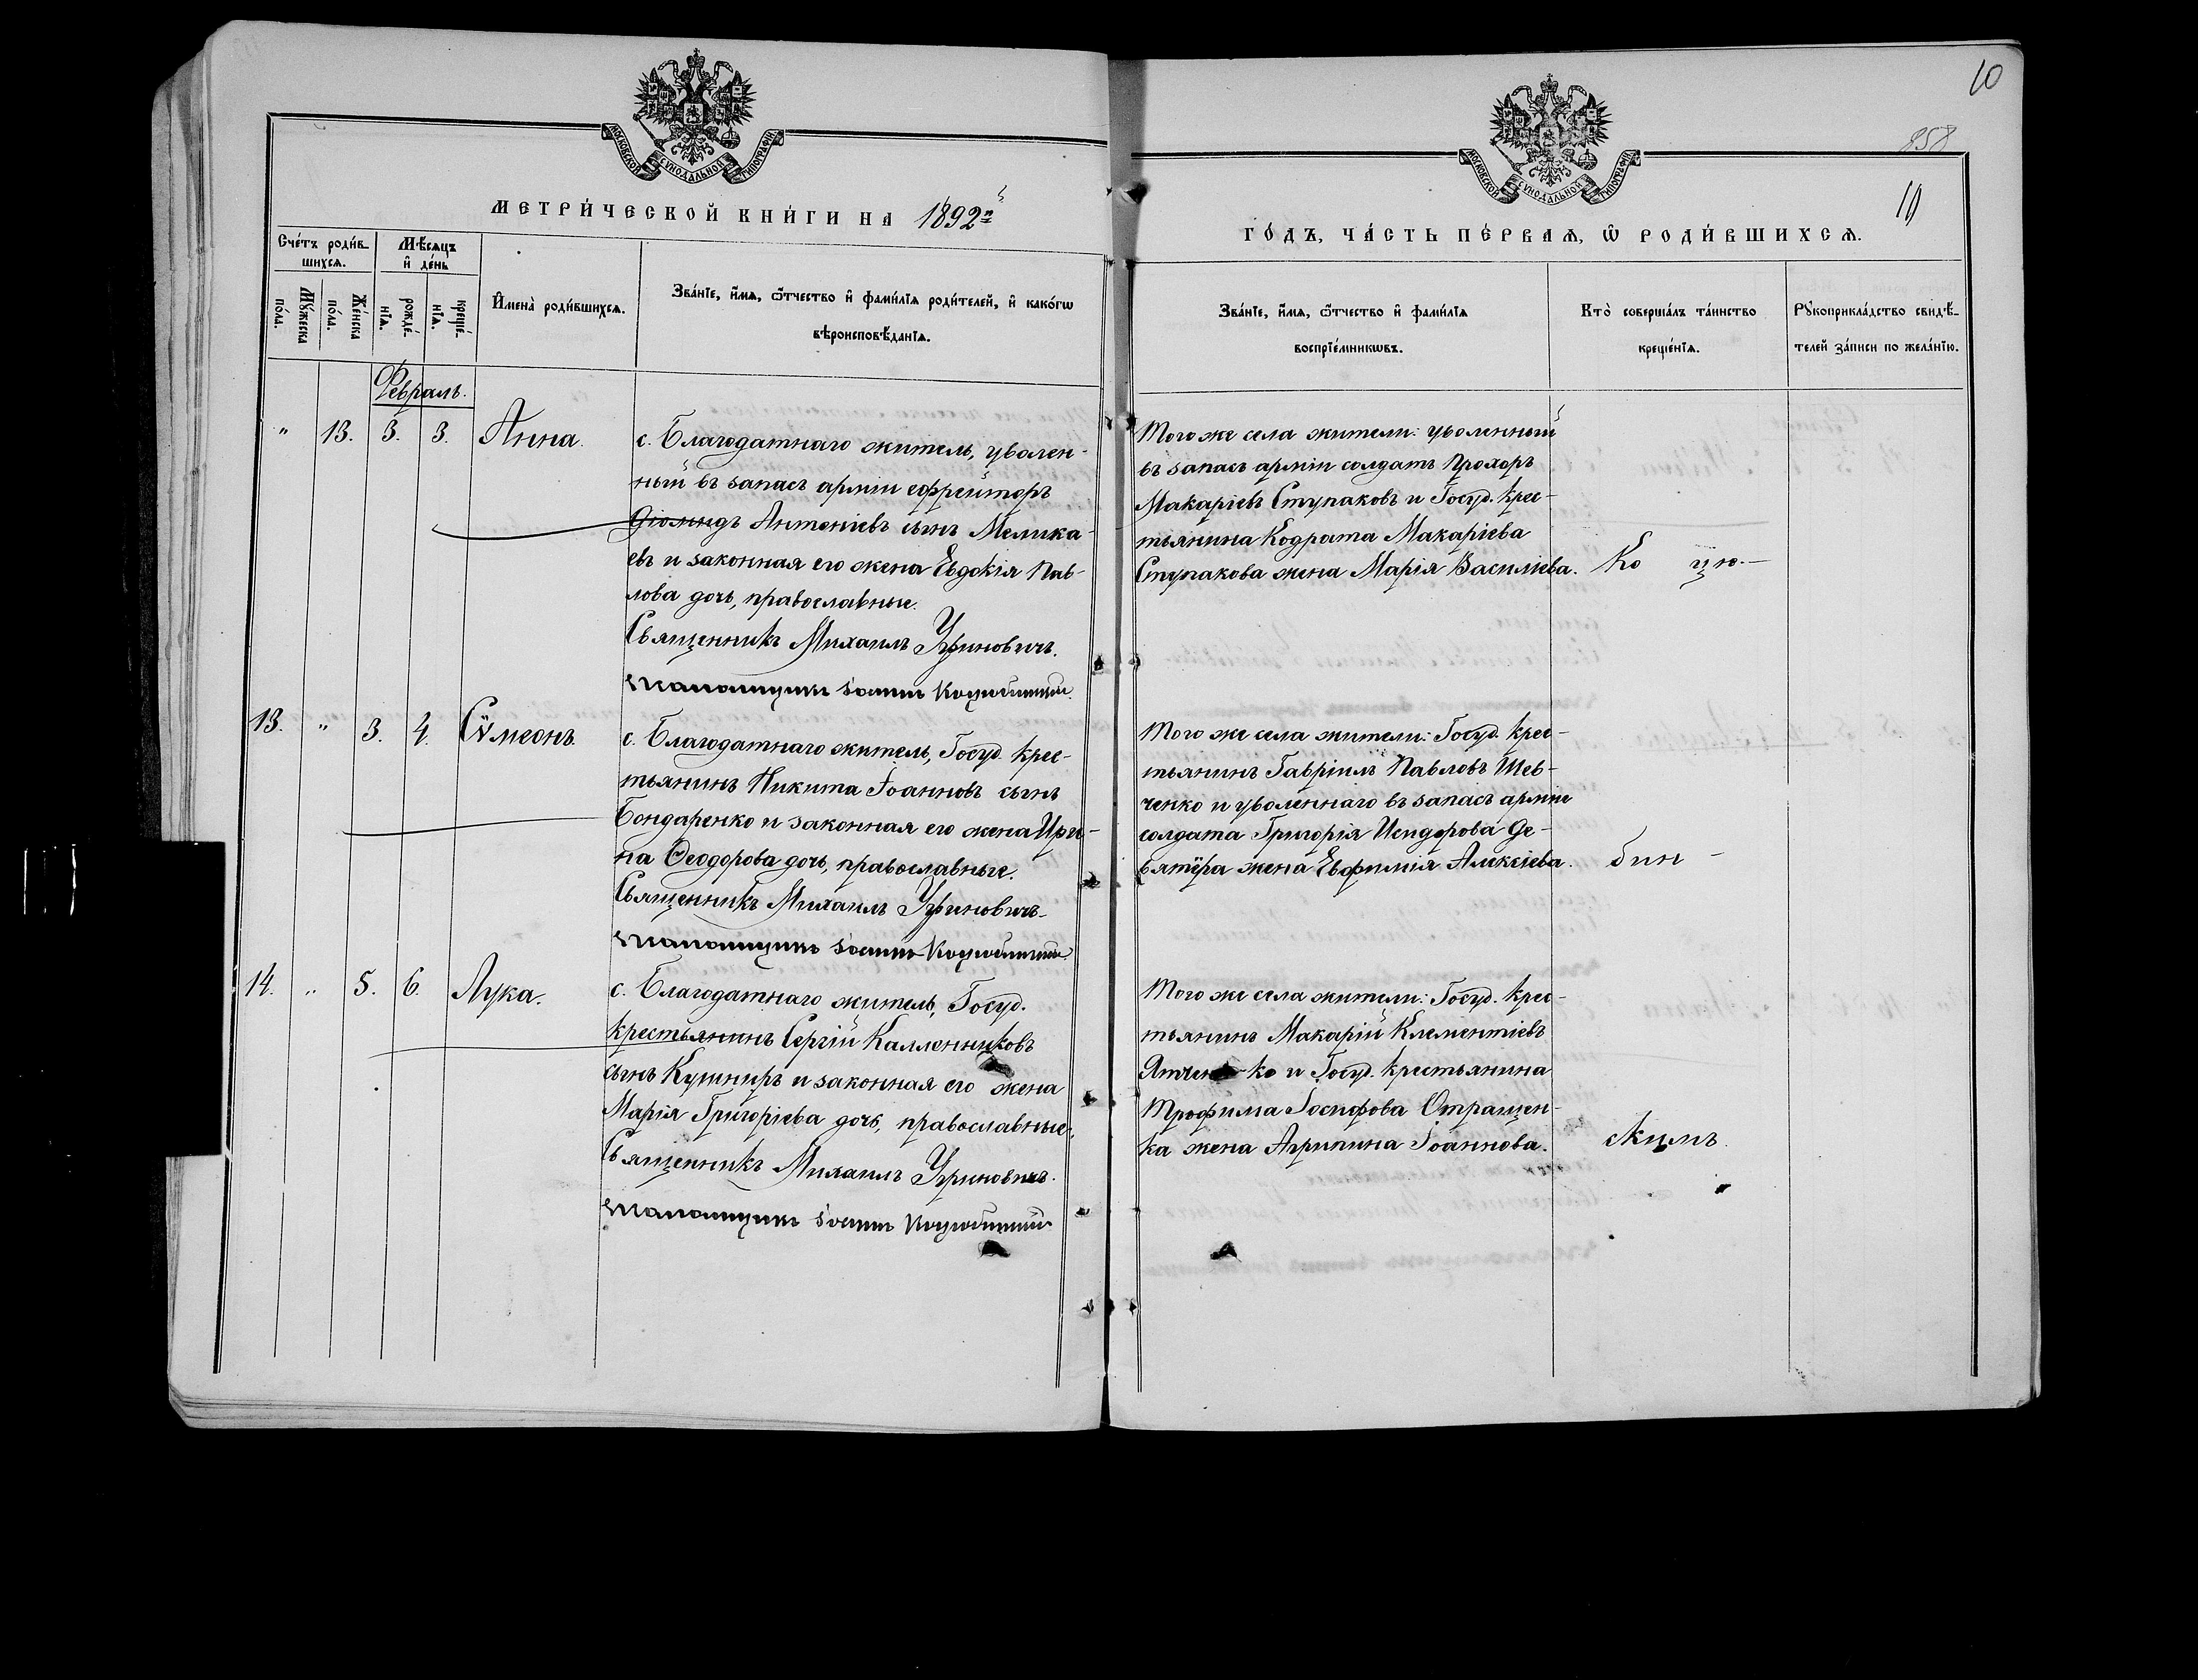 10
МОСКОВСКОЙ СѴНОДАЛЬНОЙ ТИПОГРАФІИ
МОСКОВСКОЙ СѴНОДАЛЬНОЙ ТИПОГРАФІИ
858
10
МЕТРИ́ЧЕСКОЙ КНИ́ГИ НА 1892й
ГО́ДЪ, ЧА́СТЬ ПЕ́РВАЯ, Ѡ҆ РОДИ́ВШИХСЯ.
Сче́тъ роди́в-
шихся.
Мѣ́сяцъ
и҆ де́нь
Му́жеска
по́ла.
Же́нска
по́ла.
рожде́-
нїя.
креще́-
нїя.
И҆мена̀ роди́вшихся.
Зва́нїе, и҆́мя, ѻ҆́тчество и҆ фами́лїя роди́телей, и҆ како́гѡ
вѣроисповѣ́данїя.
Зва́нїе, и҆́мя, ѻ҆́тчество и҆ фами́лїя
воспрїе́мникѡвъ.
Кто̀ соверша́лъ та́инство
креще́нїя.
Рꙋкоприкла́дство свидѣ́-
телей за́писи по жела́нїю.
Февраль.
" 13. 3. 3. Анна.
с. Благодатнаго житель, уволен-
ный въ запасъ арміи ефрейторъ
Діомидъ Антоніевъ сынъ Мелика-
евъ и законная его жена Евдокія Пав-
лова дочь, православные.
Священникъ Михаилъ Угриновичъ.
Псаломщикъ Іоаннъ Коцюбинскій.
Того же села жители: уволенный
въ запасъ арміи солдатъ Прохоръ
Макаріевъ Ступаковъ и Госуд. крес-
тьянина Кодрата Макаріева
Ступакова жена Марія Василіева.
Ко цю.-
13. " 3. 4. Сѵмеонъ.
с. Благодатнаго житель, Госуд. крес-
тьянинъ Никита Іоанновъ сынъ
Бондаренко и законная его жена Ири-
на Ѳеодорова дочь, православные.
Священникъ Михаилъ Угриновичъ.
Псаломщикъ Іоаннъ Коцюбинскій.
Того же села жители: Госуд. крес-
тьянинъ Гавріилъ Павловъ Шев-
ченко и уволеннаго въ запасъ арміи
солдата Григорія Исидорова Де-
вятёра жена Евфимія Алексіева.
бин-
14. " 5. 6. Лука.
с. Благодатнаго житель, Госуд.
крестьянинъ Сергій Каллениковъ
сынъ Кушниръ и законная его жена
Марія Григоріева дочь, православные.
Священникъ Михаилъ Угриновичъ.
Псаломщикъ Іоаннъ Коцюбинскій.
Того же села жители: Госуд. крес-
тьянинъ Макарій Клементіевъ
и Госуд. крестьянина
Трофима Іосифова Отращен-
ка жена Агрипина Іоаннова.
скимъ.